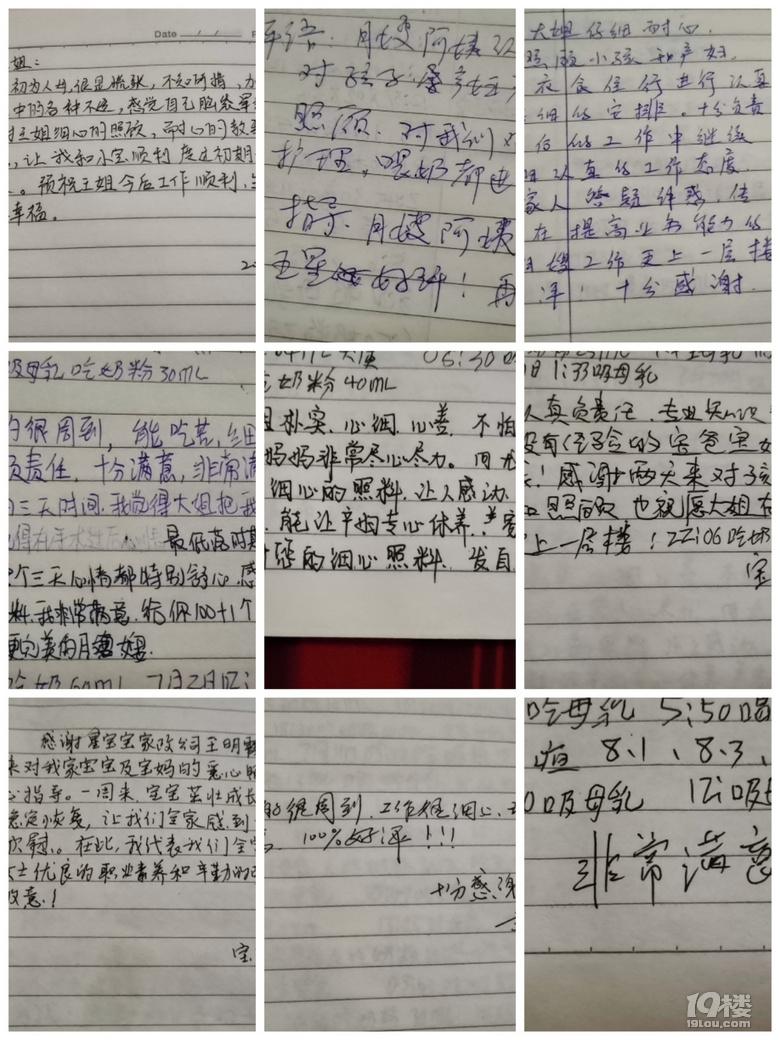 Date
姐：
初为人母，很是慌张，不知所措，
中的各种不适，感觉自己
王姐细心的照顾，耐心的教
，让我和小宝顺利度过初期
。预祝王姐今后工作顺利，
幸福。
评语：月嫂阿姨
对孩子
照顾. 对我们
护理，喂奶都
指导. 月嫂阿姨
五星好评！再
大姐仔细耐心.
照顾小孩和产妇.
衣食住行进行认真
细的安排。十分负责
后的工作中继续
认真的工作态度.
家人答疑解惑.
在提高业务能力的
月嫂工作更上一层楼
十分感谢.
吸母乳吃奶粉30mL
的很周到，能吃苦，细
负责任，十分满意，非常满
三天时间，我觉得大姐把我
最低落时期
个三天心情都特别舒心，感
料，我非常满意，给你100+1个
更完美的月嫂
7月2日
06:30
奶粉40mL
朴实、心细、心善，不怕
妈妈非常尽心尽力。
细心的照料，让人感动
能让产妇专心休养，
的细心照料，发自
1:33吸母乳
认真负责任，专业知识
没有经验的宝爸宝妈
！感谢两天来对孩
照顾，也祝愿大姐
上一层楼！22:06吃奶
宝
感谢星宝宝家政公司王明
来对我家宝宝及宝妈的悉心照
心指导。一周来，宝宝茁壮成长
恢复，让我们全家感到
欣慰。在此，我代表我们全
女士优良的职业素养和辛勤的
敬意！
宝
的很周到，工作很细心，
100%好评！！！
十分感谢
吃母乳 5:50喝
疸 8.1、8.3、
吸母乳 12:吸
非常满意
19楼
19lou.com